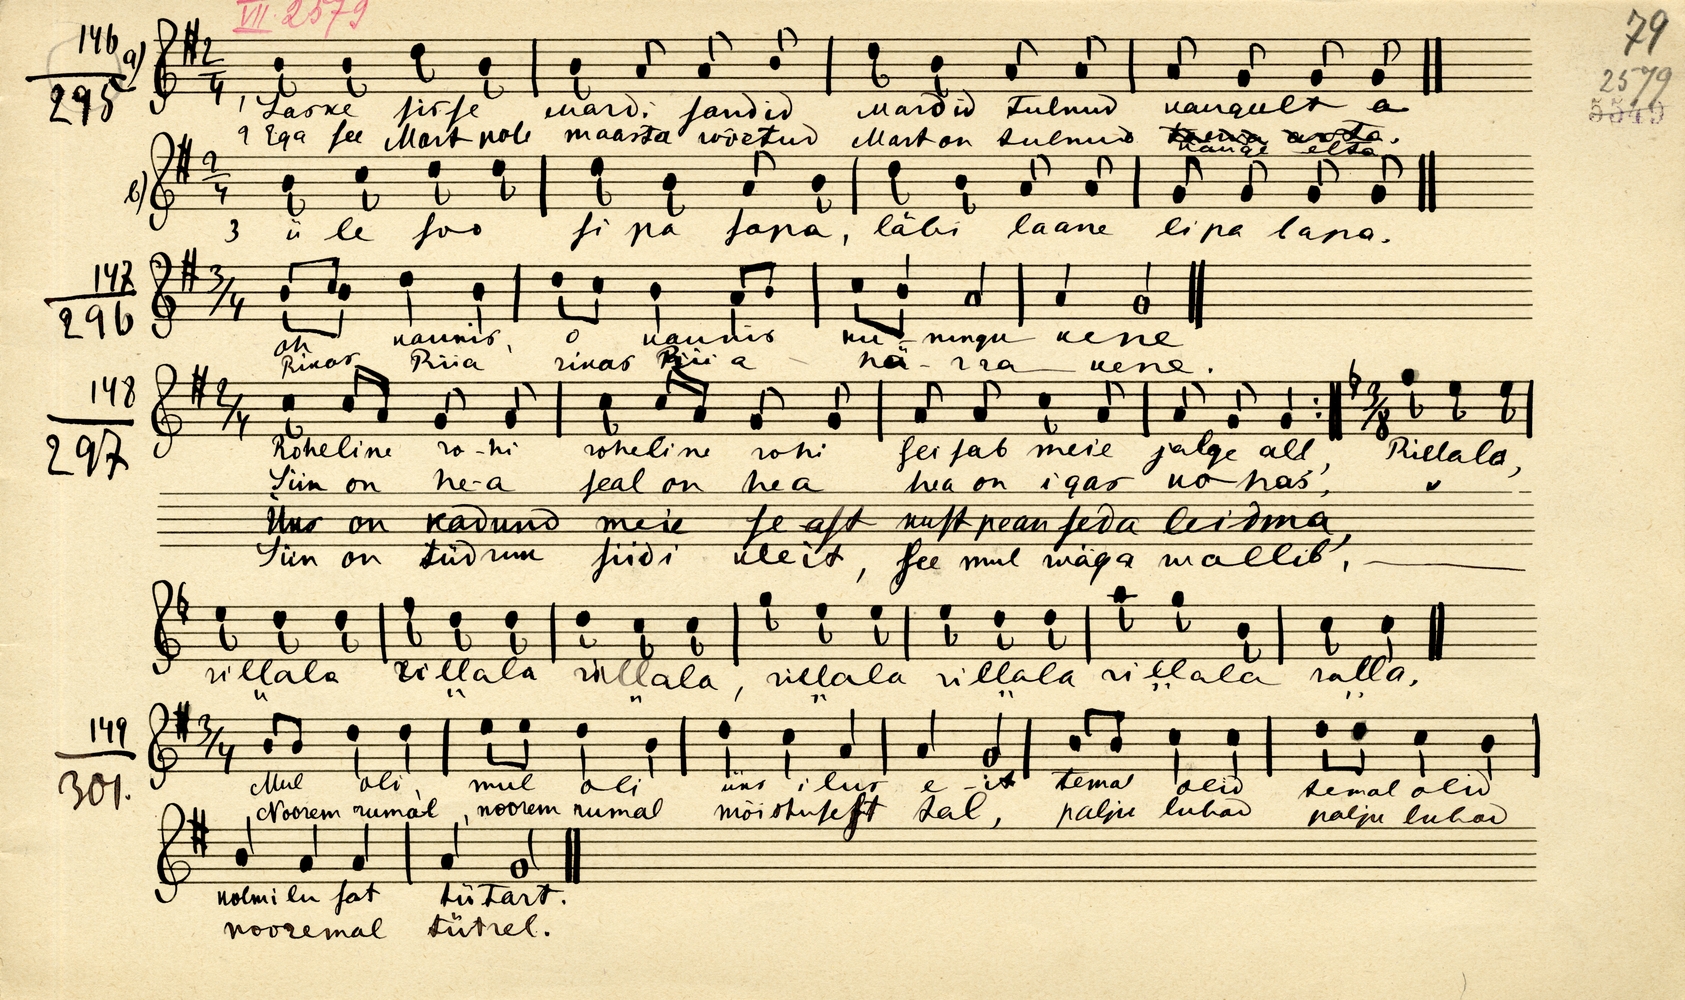 VII 2579
79
2579
5549
146 a)
295
2/4
1, Laske sisse mardi sandid mardid tulnud kaugelt a
2 Ega see Mart pole maasta võetud Mart on tulnud
kauge elta
b)
2/4
3 ü le soo si pa sapa, läbi laane lipa lapa.
147
296
3/4
oh kaunis, o kaunis ku-ningu kene
Rikas Riia rikas Riia hä-rra kene.
148
297
2/4 3/8
Roheline ro-hi roheline rohi seisab meie jalge all, Rillala,
Siin on he-a seal on hea hea on igas kohas,
Üks on kadund meie seast kust pean seda leidma
Siin on tüdruk siidi kleit, see mul wäga mallib,
rillala rillala rillala, rillala rillala rillala ralla.
149
301.
3/4
Mul oli, mul oli üks ilus e-it temal olid temal olid
Noorem rumal, noorem rumal mõistusest tal, palju lubad palju lubad
kolmi lu sat tütart.
nooremal tütrel.